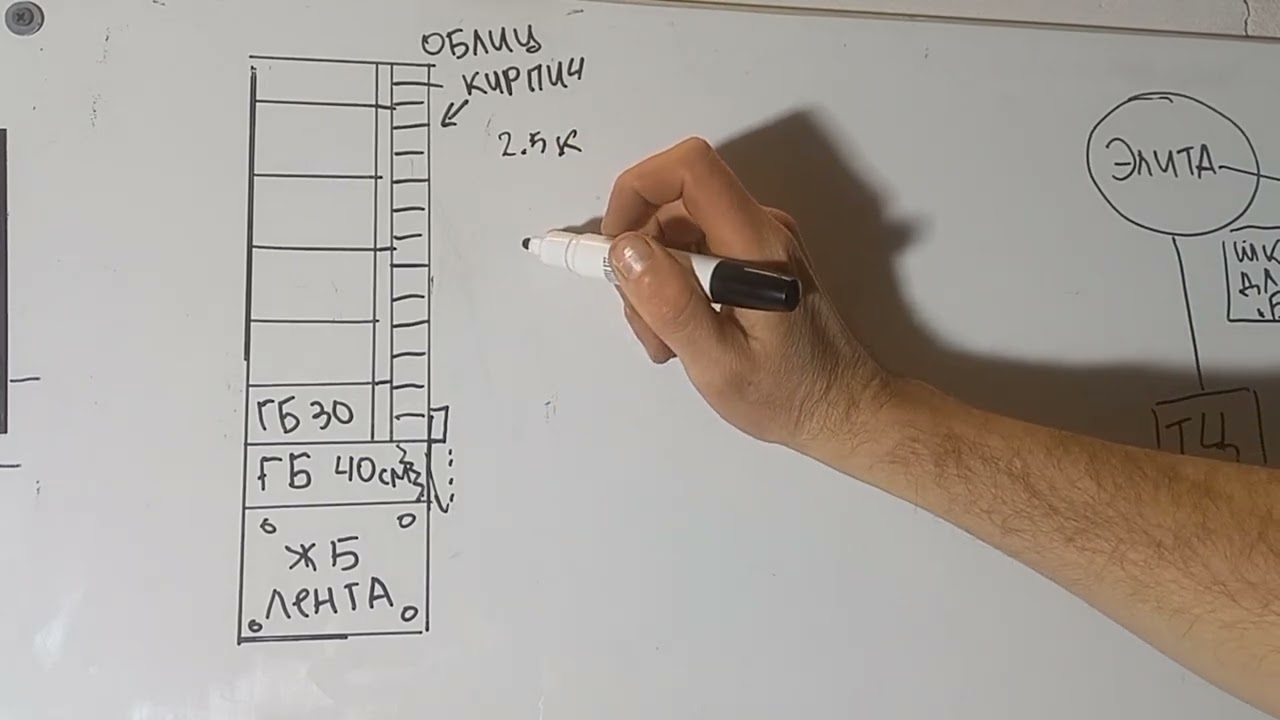 ОБЛИЦ
КИРПИЧ
2.5к
ГБ 30
ГБ 40см
ЖБ
ЛЕНТА
ЭЛИТА
ШК
ДЛ
ТЦ